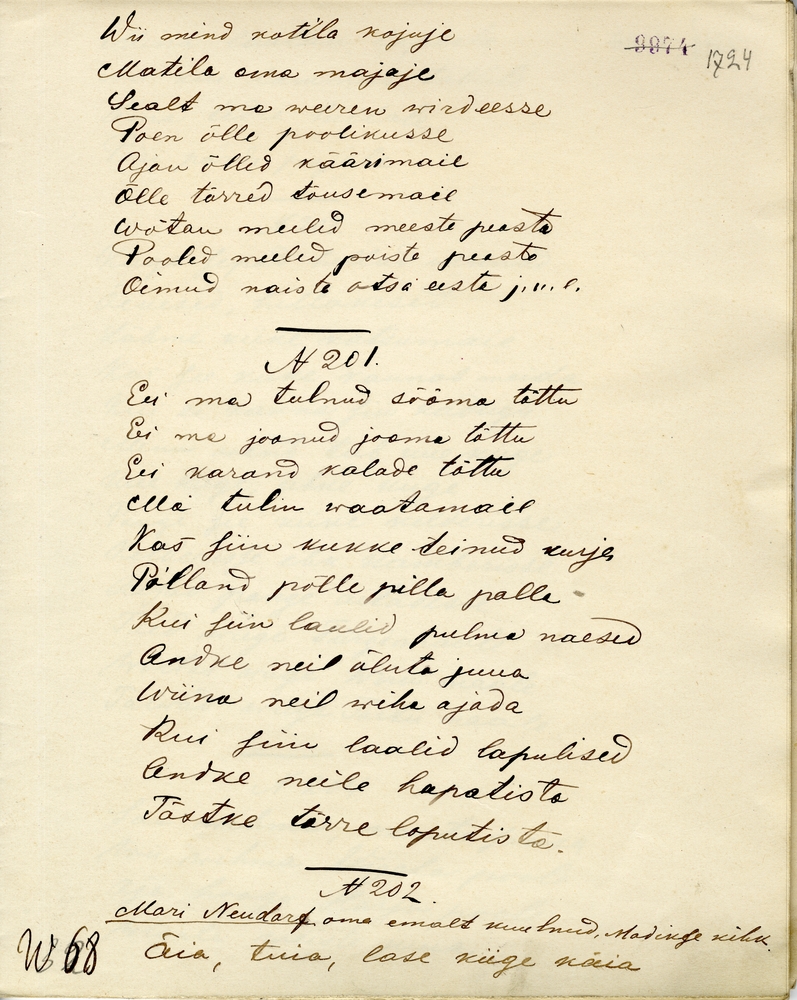 9974 1724
Wii mind kotila kojuje
Matila oma majaje
Sealt ma weeren wirdeesse
Poen õlle poolikusse
Ajan õlled käärimaie
Õlle tõrred tõusemaie
Wõtan meeled meeste peasta
Pooled meeled poiste peasta
Oimud naiste otsa eesta j.n.e.
N 201.
Ei ma tulnud sööma tõttu
Ei ma joonud jooma tõttu
Ei karand kalade tõttu
Ma tulin waatamaie
Kas siin kukke teinud kurje
Põlland põlle pilla palla
Kui siin laalid pulma naesed
Andke neil õluta juua
Wiina neil wiha ajada
Kui siin laalid lapulised
Andke neile hapatista
Tõstke tõrre loputista.
N 202.
Mari Neudorf oma emalt kuulnud, Madikse kihk.
W 68 Äia, tuia, lase kiige käia